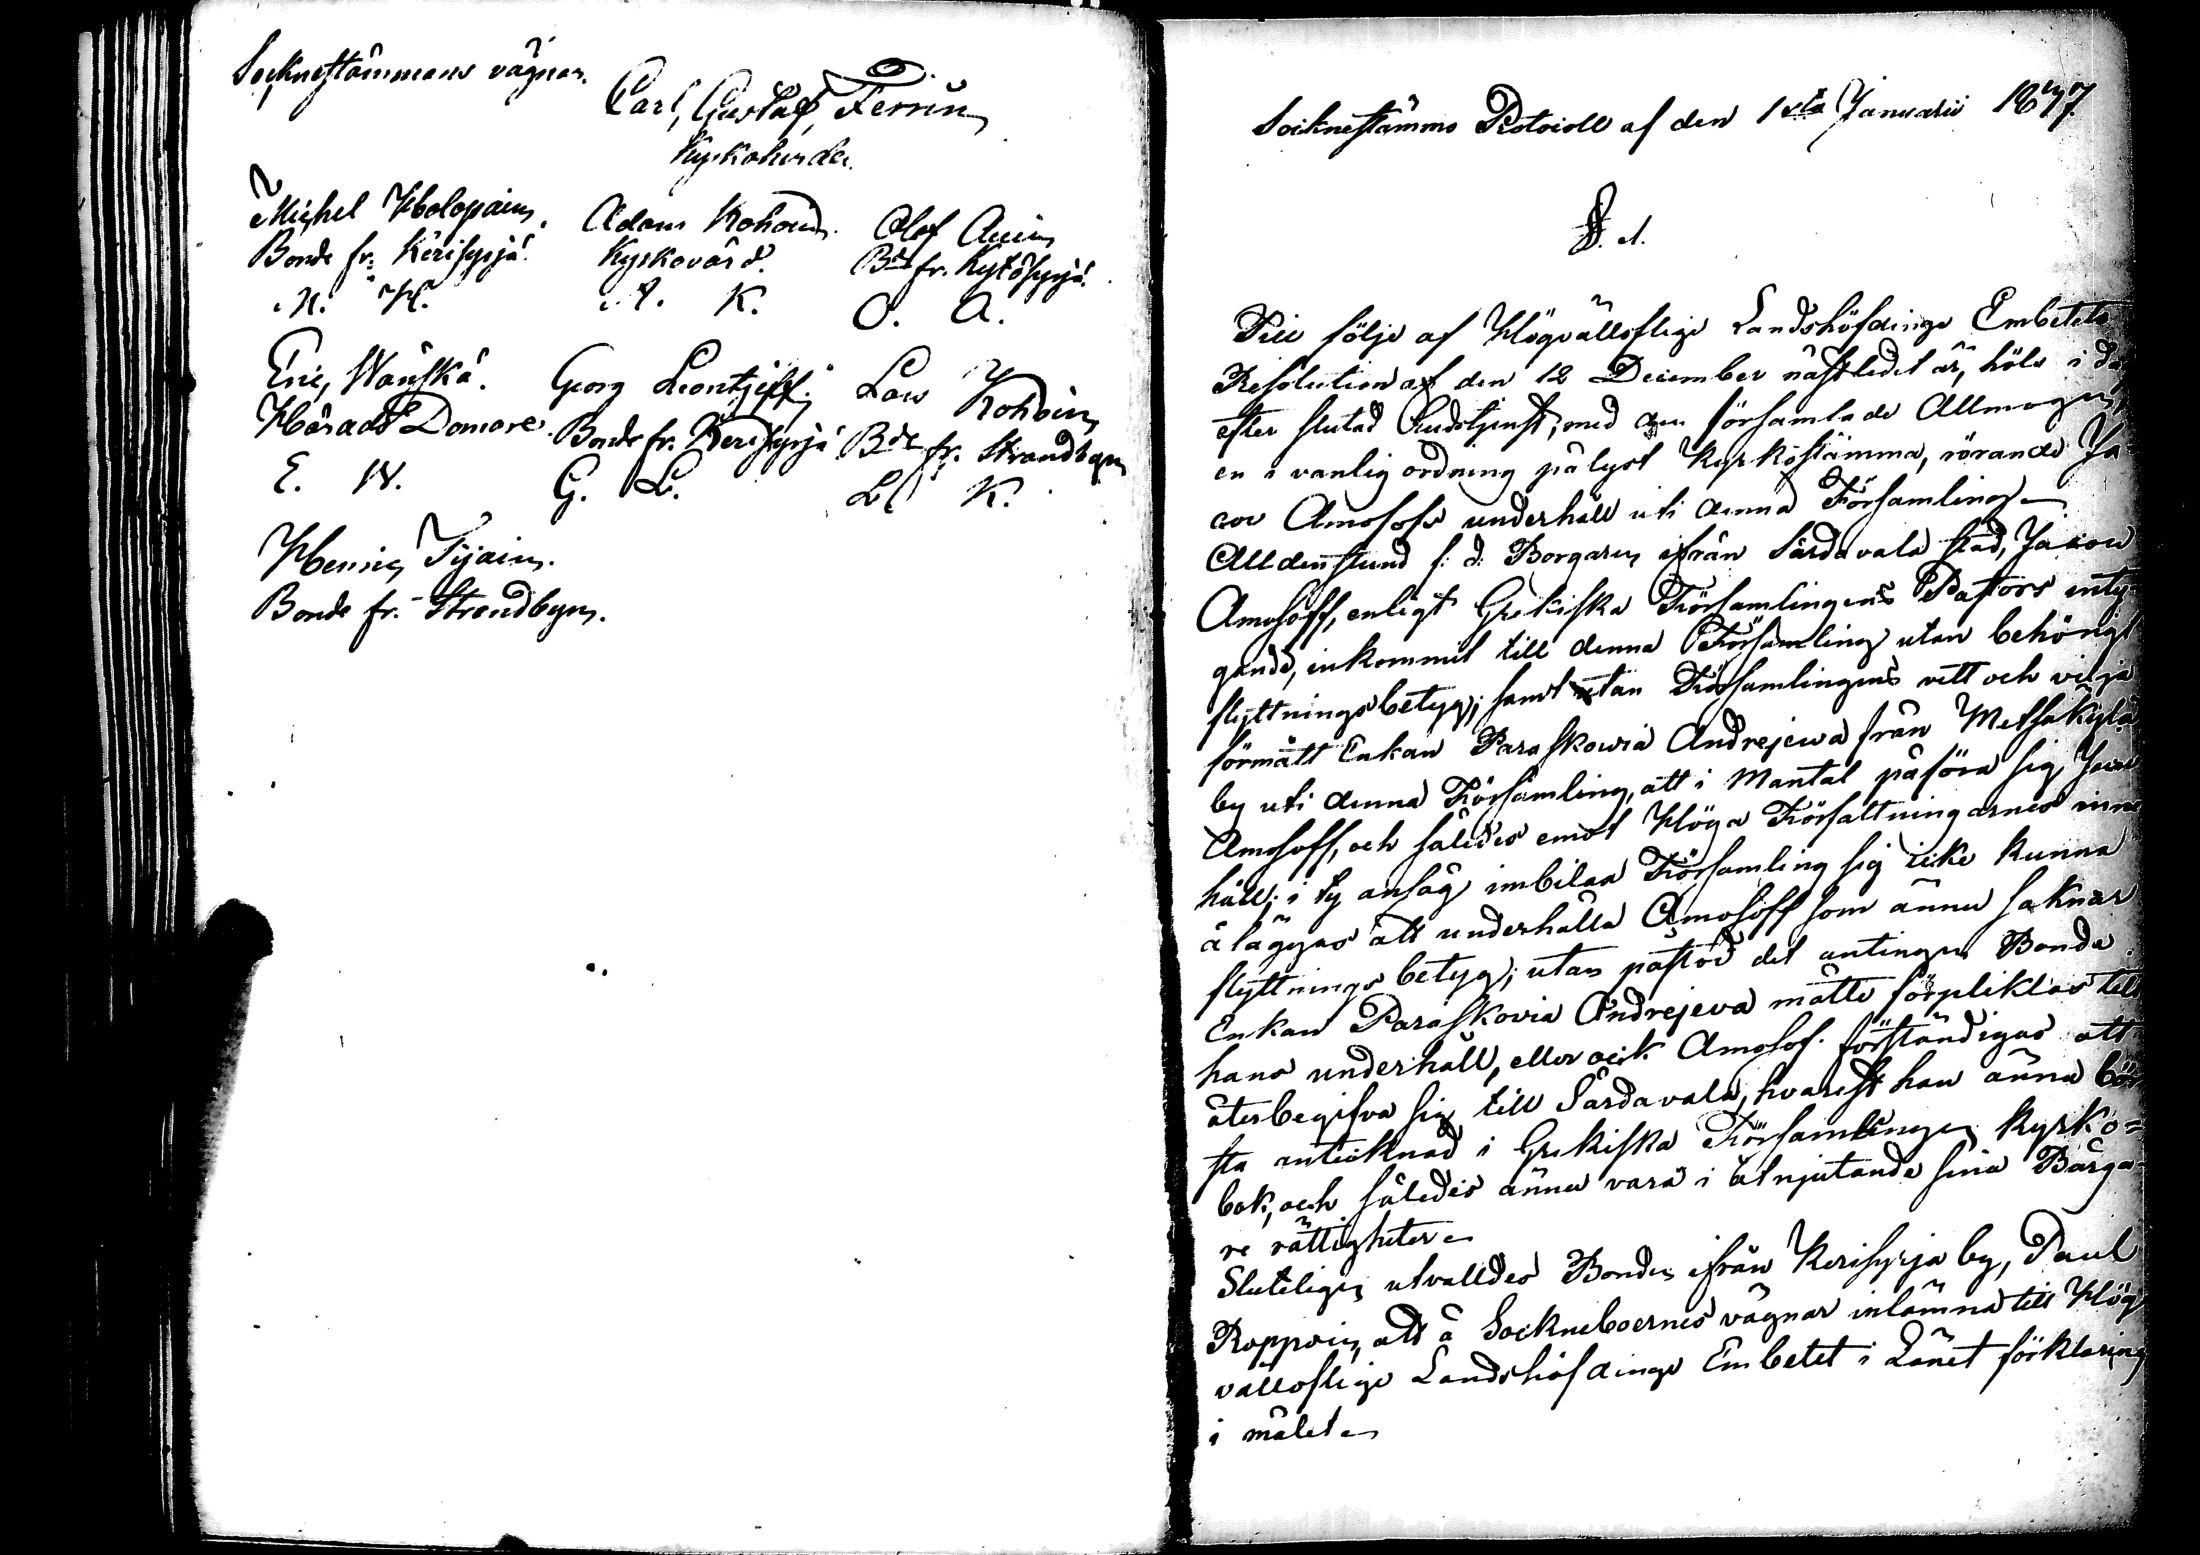 Socknestämmans vägnar.
Carl Gustaf Ferrin
Kyrkoherde.
Michel Holopain Adam Kohoin Olof Auin
Bonde fr: Kerisyrjä. Kyrkovärd. Bde fr. Kytösyrjä.
M. H. A. K. O. A.
Eric Wänskä. Georg Leontjeff. Lars Kohoin
Härads Domare. Bonde fr. Kerisyrjä Bde fr. Strandbyn
E. W. G. L. L. K.
Henric Tijain.
Bonde fr. Strandbyn.
Socknestämmo Protocoll af den 1sta Januarii 1847.
§. 1.
Till följe af Högvällofliga Landshöfdinge Embetets
Resolution af den 12 December nästledet år, höls i dag
efter slutad Gudstjenst, med den församlade Allmogen,
en i vanlig ordning pålyst Kyrkostämma, rörande Ja-
cov Amosoffs underhåll uti denna Församling
Alldenstund f: d: Borgaren ifrån Sardavala stad, Jacov
Amosoff, enligt Grekiska Församlingens Pastors inty-
gande, inkommit till denna Församling utan behörigt
flyttningsbetyg; samt utan Församlingens vett och vilja
förmått Enkan Paraskowia Andrejewa från Metsäkylä
by uti denna Församling, att i Mantal påföra sig Jacov
Amosoff, och således emot Höga Författningarnes inne-
håll; i ty ansåg imbilaa Församling sig icke kunna
åläggas att underhålla Amosoff som ännu saknar
flyttnings betyg; utan påstod det antingen Bonde
Enkan Paraskovia Andrejeva måtte förpliktas till
hans underhåll, eller ock Amosof. förständigas att
återbegifva sig till Sardavala, hvarest han ännu bör
sta antecknad i Grekiska Församlingen Kyrko=
bok, och således ännu vara i åtnjutande sina Borga-
re rättigheter
Sluteligen utvalldes Bonden ifrån Kerisyrja by, Paul
Roppoin, att å Sockneboernes vägnar inlämna till Hög
vällofliga Landshöfdinge Embetet i Länet förklaring
i målet